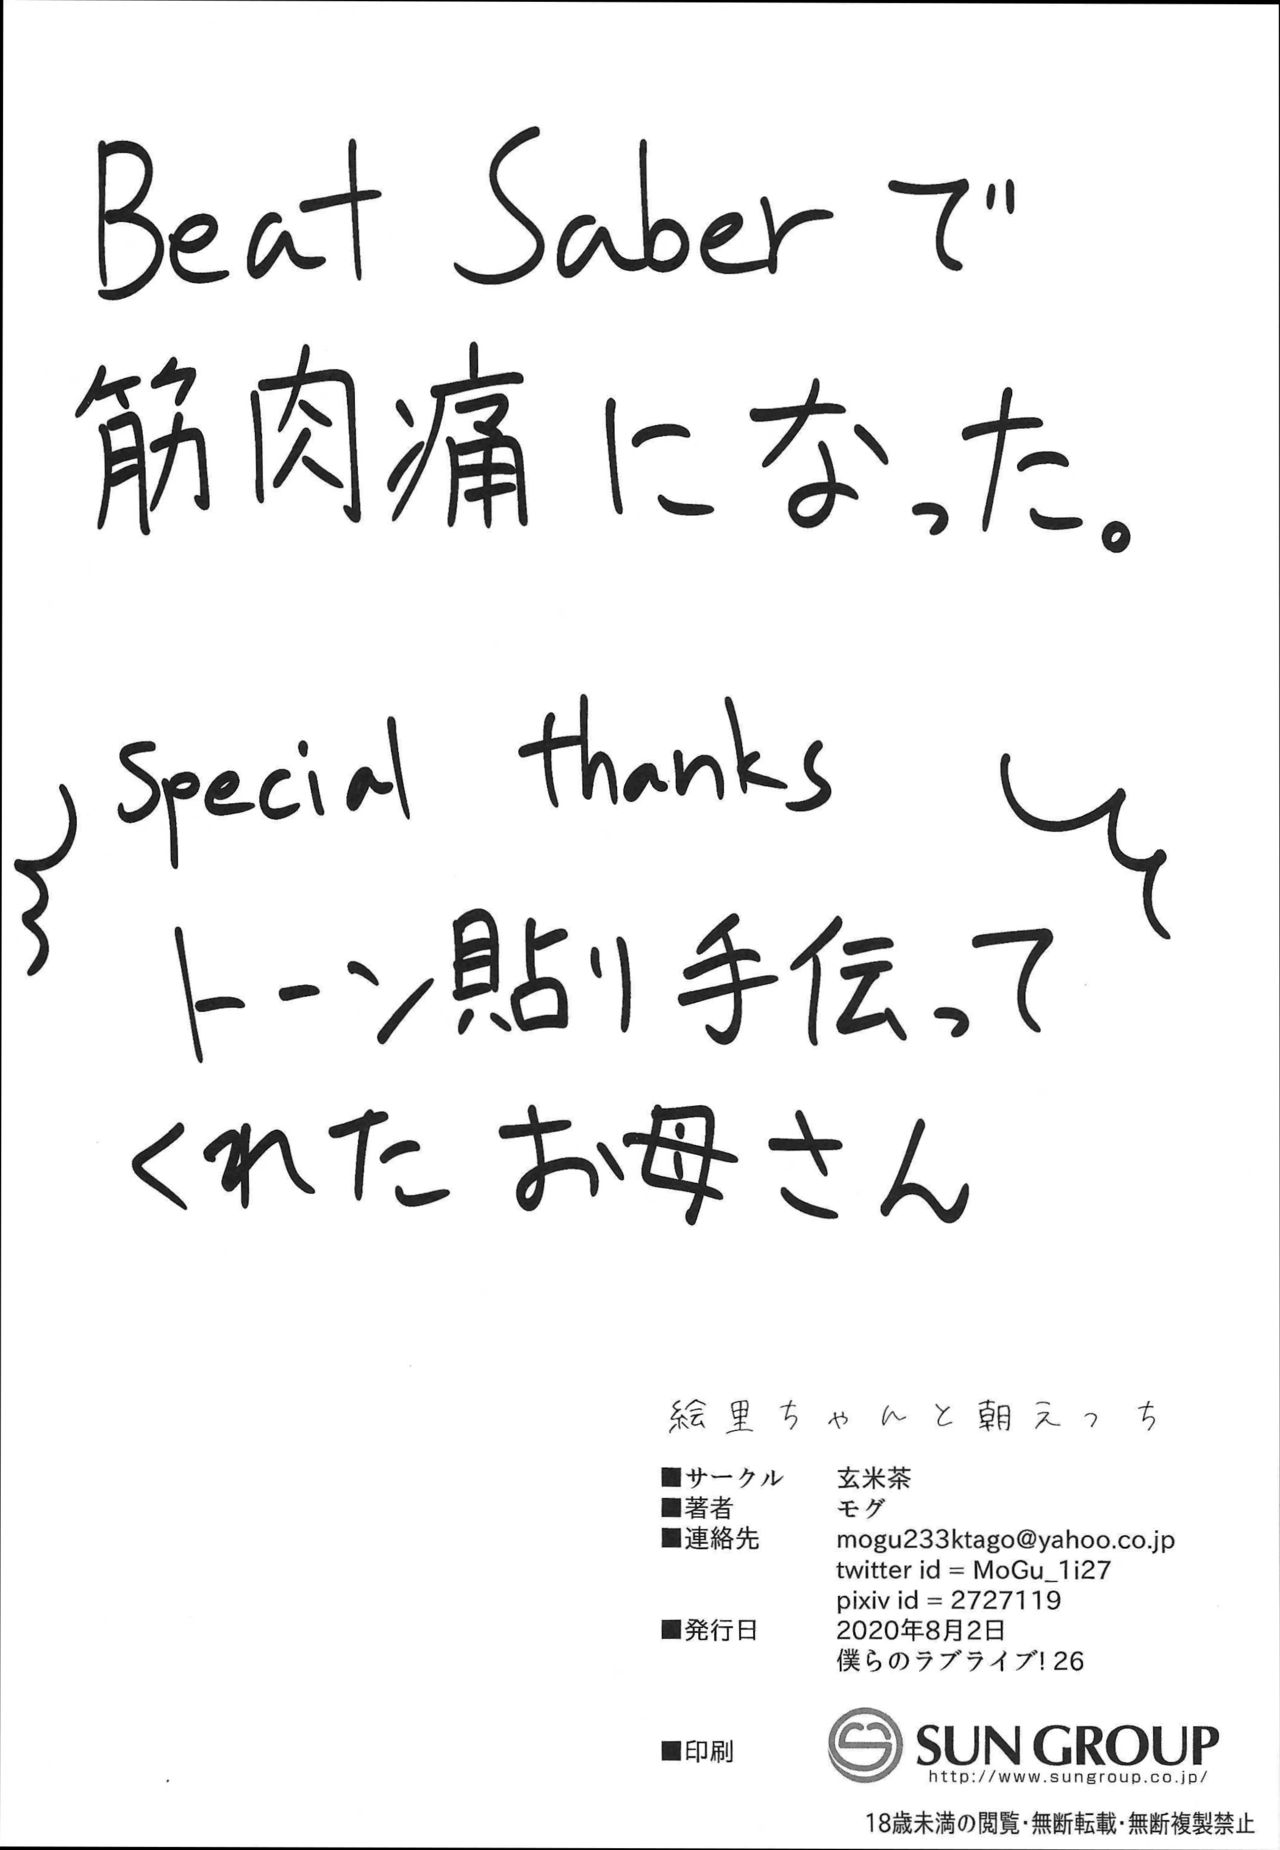 Beat Saberで
筋肉痛になった。
special thanks
トーン貼り手伝って
くれたお母さん
絵里ちゃんと朝えっち
■サークル 玄米茶
■著者 モグ
■連絡先 mogu233ktago@yahoo.co.jp
twitter id = MoGu_1i27
pixiv id = 2727119
■発行日 2020年8月2日
僕らのラブライブ! 26
■印刷 SUN GROUP
http://www.sungroup.co.jp/
18歳未満の閲覧・無断転載・無断複製禁止